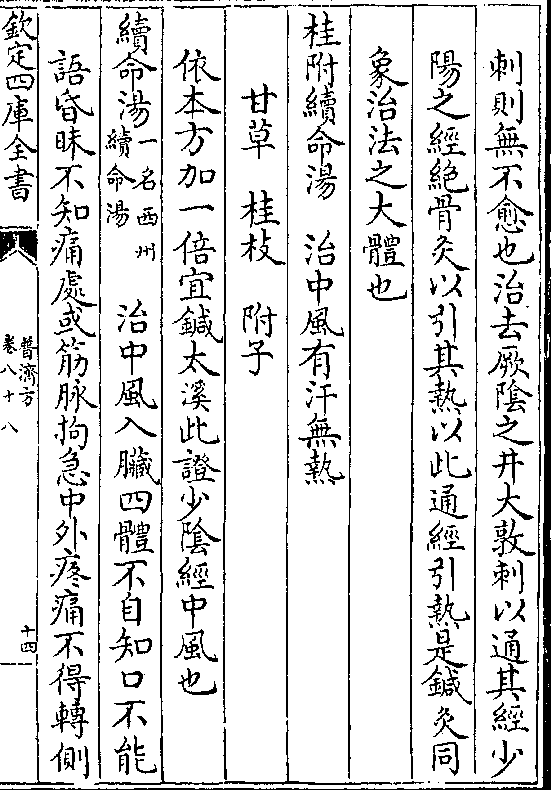 刺則無不愈也治去厥陰之井大敦刺以通其經少
陽之經絶骨灸以引其熱以此通經引熱是鍼灸同
象治法之大體也
桂附續命湯　治中風有汗無熱
甘草　桂枝　附子
依本方加一倍宜鍼太溪此證少陰經中風也
續命湯一名西州續命湯　治中風入臟四體不自知口不能
語昏昧不知痛處或筋脉拘急中外疼痛不得轉側
欽定四庫全書
普濟方
卷八十八
十四